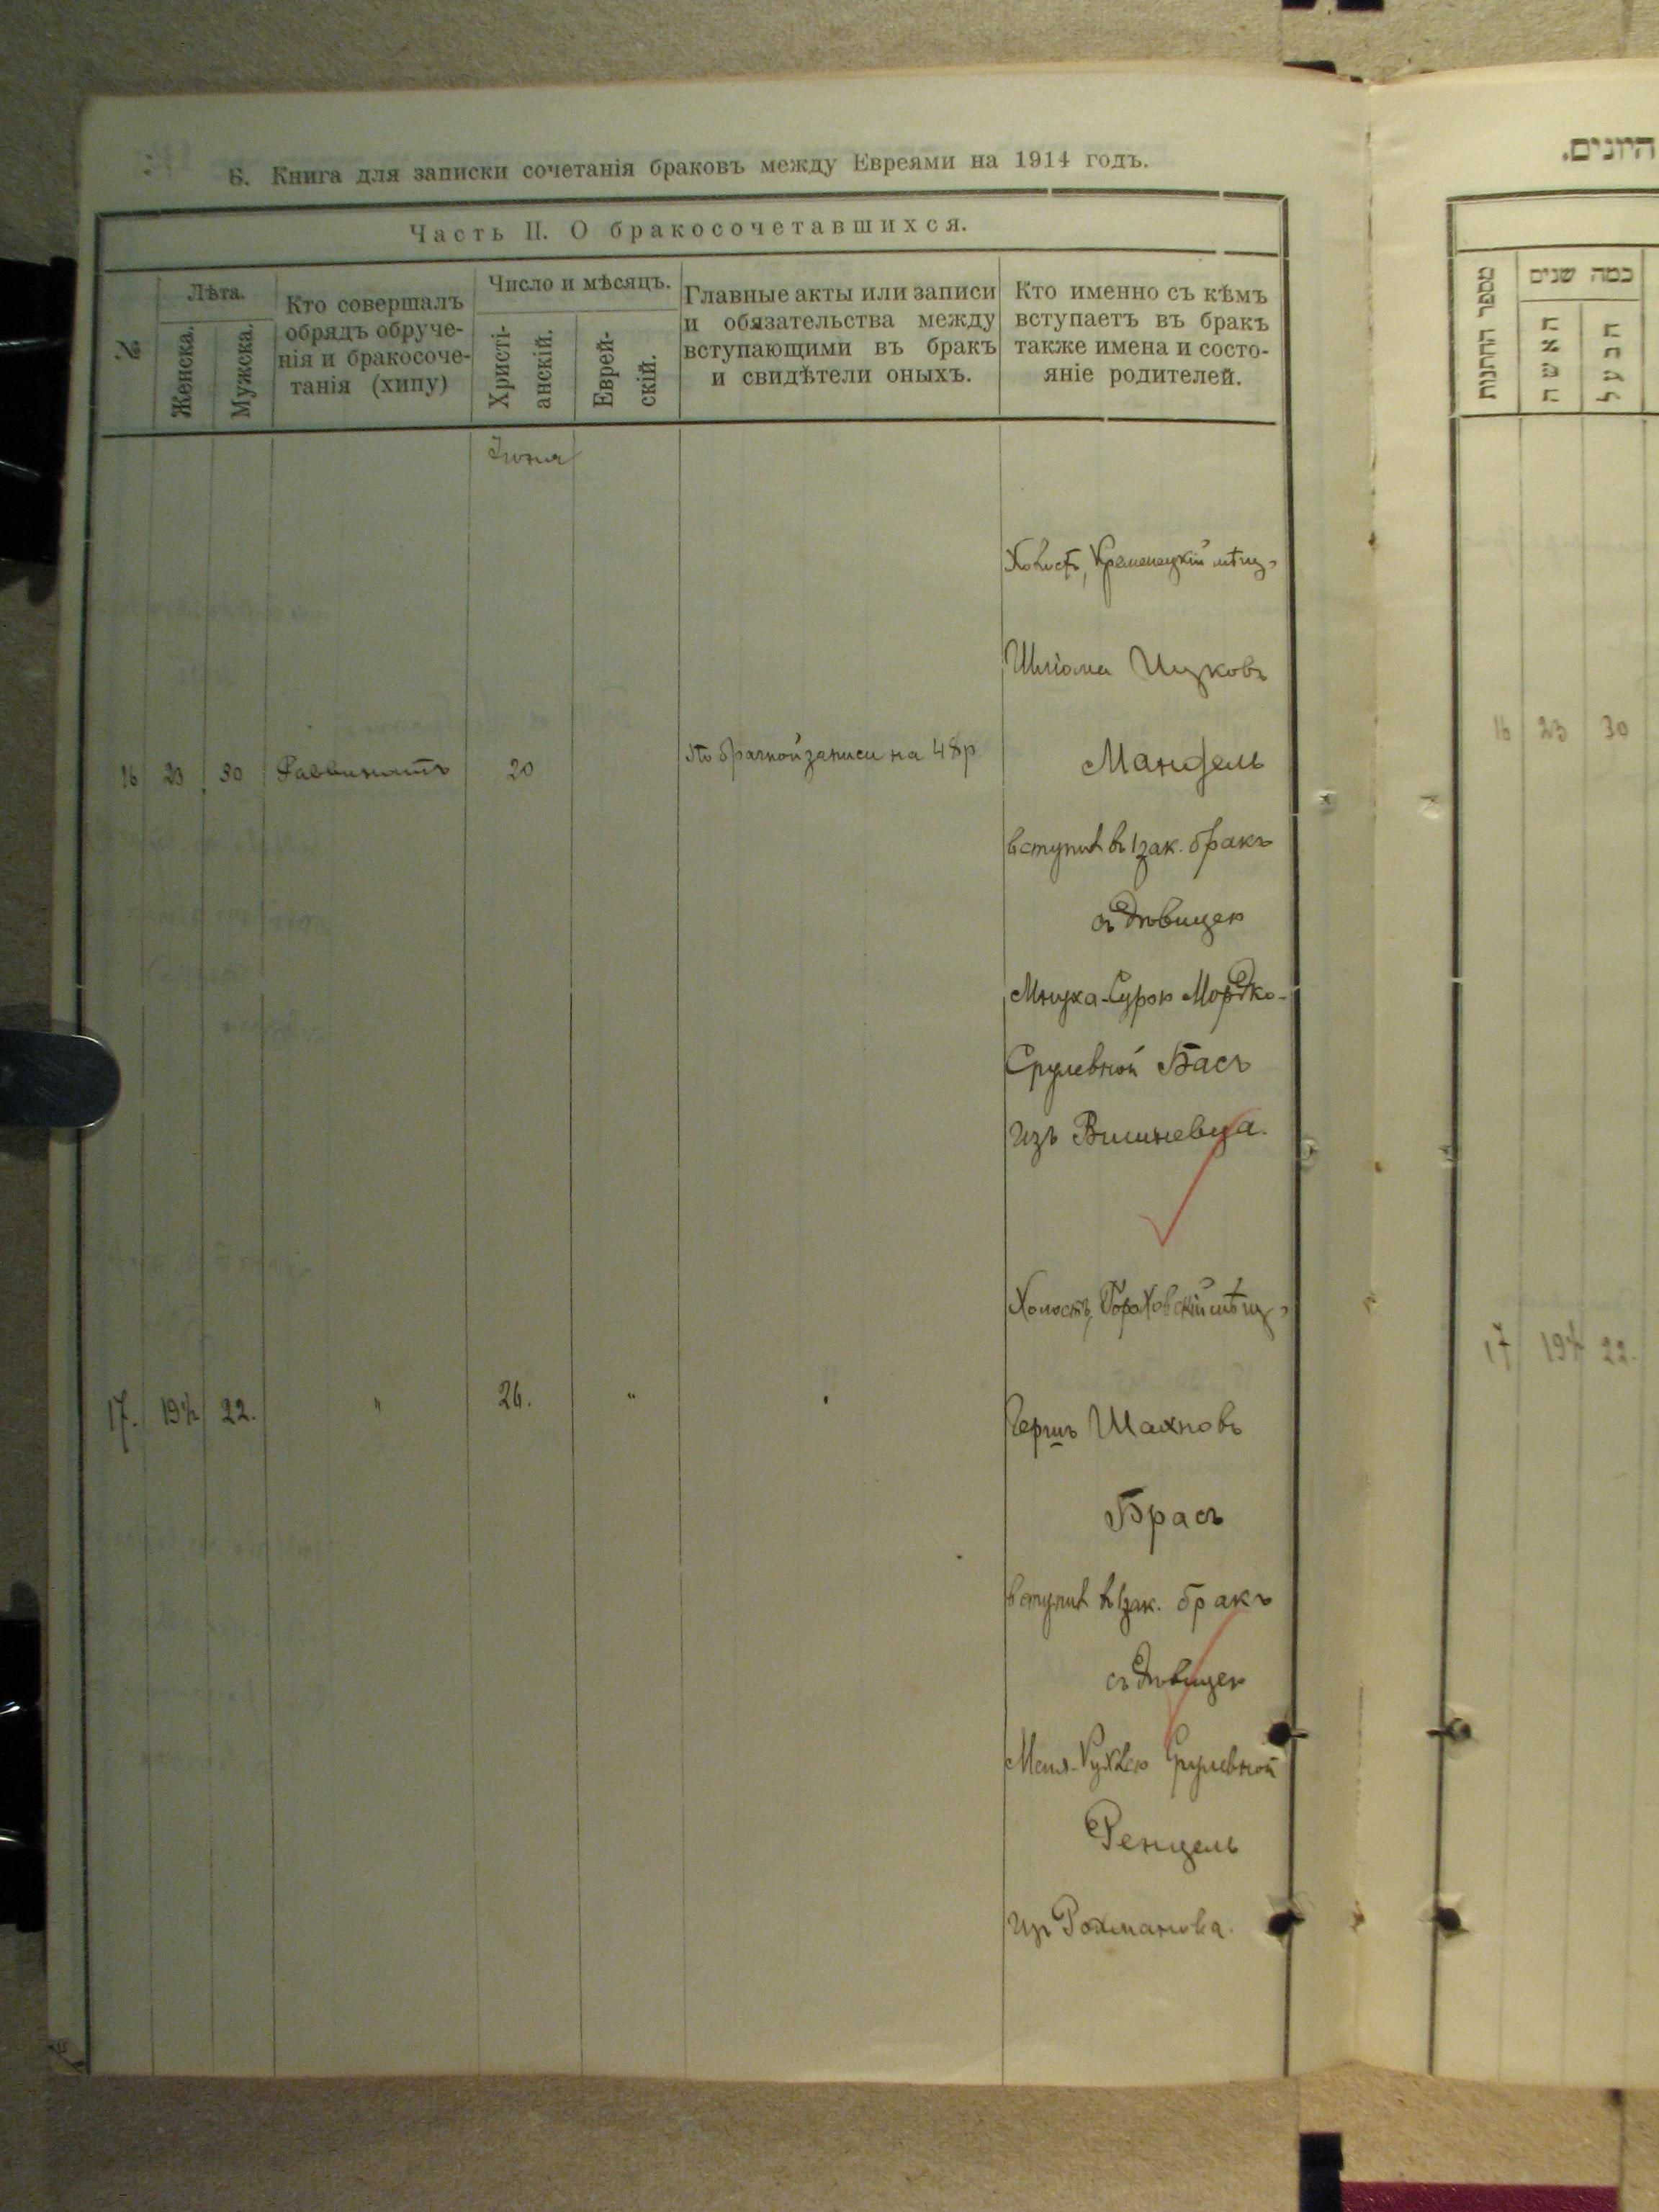 Б. Книга для записки сочетанія браковъ между Евреями на 1914 годъ.
Часть II. О бракосочетавшихся.
№
Лѣта.
Женска.
Мужска.
Кто совершалъ
обрядъ обруче-
нія и бракосоче-
танія (хипу)
Число и мѣсяцъ.
Христі-
анскій.
Еврей-
скій.
Главные акты или записи
и обязательства между
вступающими въ бракъ
и свидѣтели оныхъ.
Кто именно съ кѣмъ
вступаетъ въ бракъ
также имена и состо-
яніе родителей.
Іюня
Холостъ, Кременецкій мѣщ.
Шліома Ицковъ
16 23 30 Раввинатъ 20 По брачной записи на 48 р Мандель
вступил въ 1 зак. бракъ
съ Дѣвицею
Сурою Мордко-
Срулевной Басъ
Изъ Вишневца.
Холостъ, Гороховскій мѣщ.
17. 19½ 22. " 26. " Гершъ Шахновъ
Брасъ
вступил въ 1 зак. бракъ
съ Дѣвицею
Срулевной
Ренцель
Изъ Рохманова.
היונים.
מספר החתנות
כמה שנים
האשה
הבעל
16 23 30
17 19½ 22.